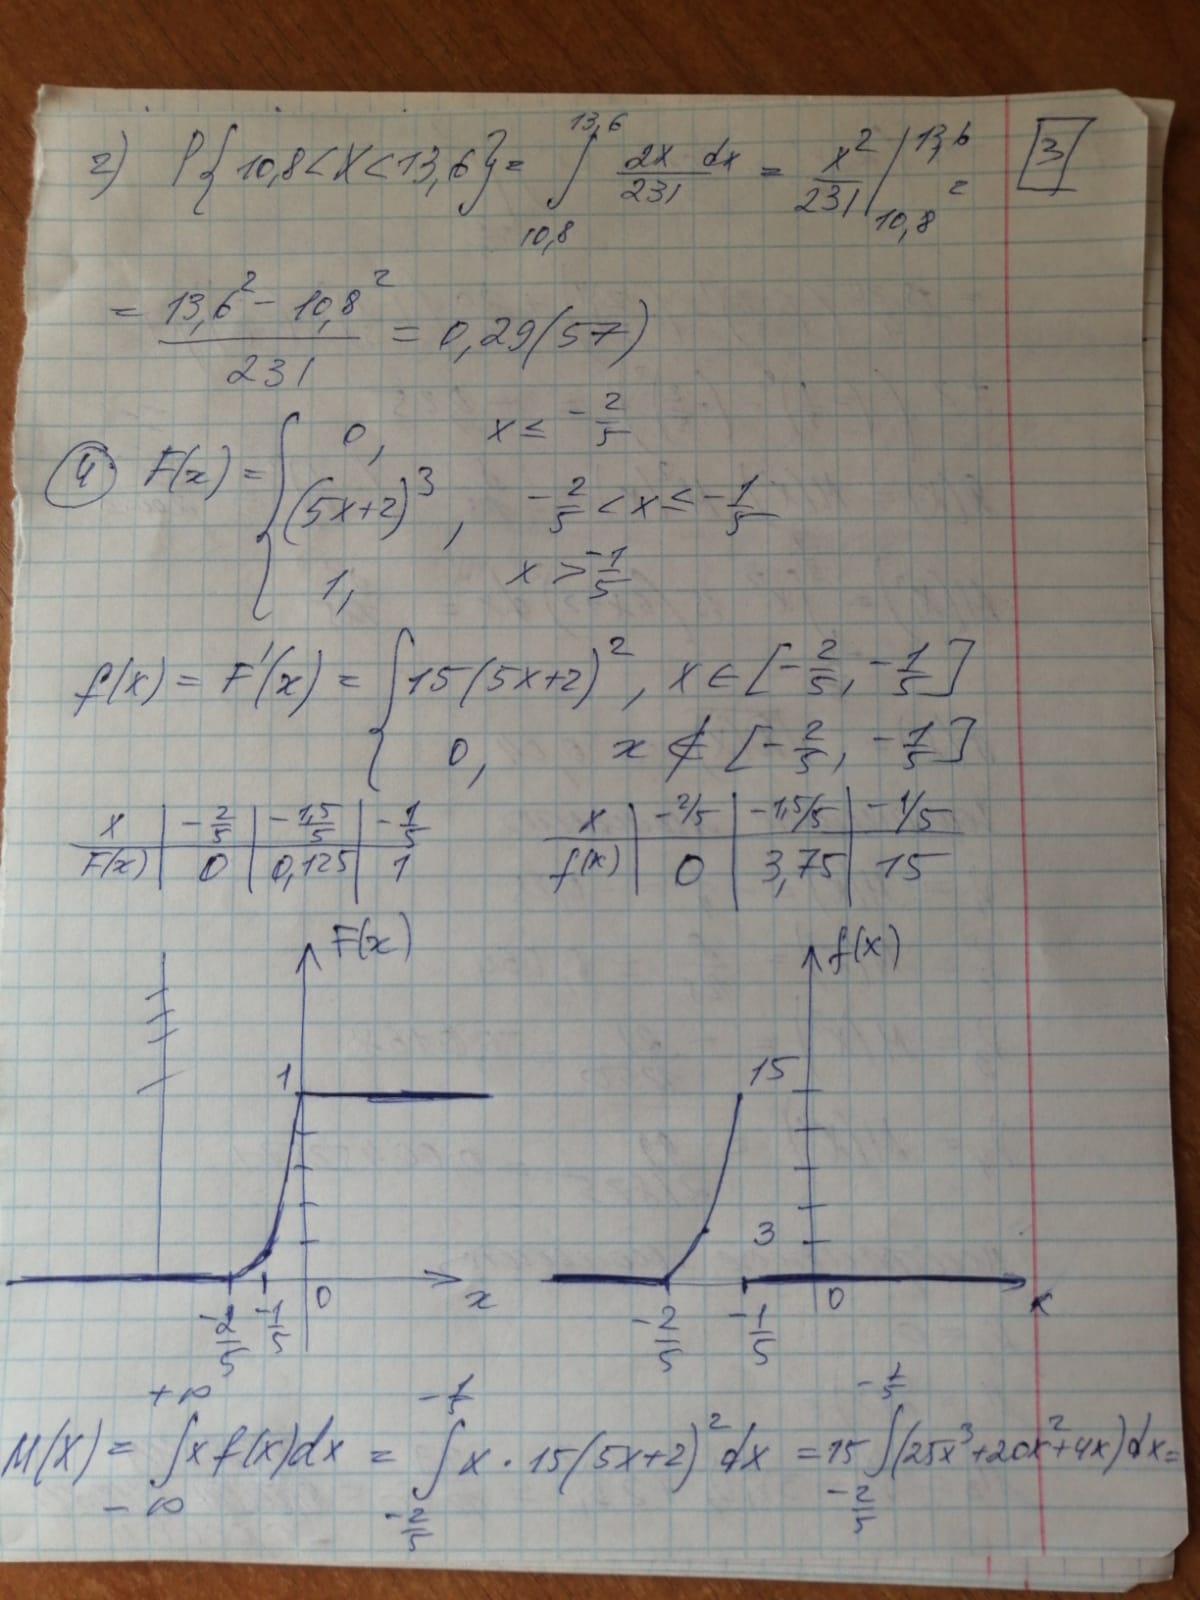 г) P{10,8<X<13,6}= ∫_{10,8}^{13,6} 2x dx/231 = x²/231 |_{10,8}^{13,6} =
3
= (13,6² - 10,8²)/231 = 0,29(57)
④ F(x) = { 0, x ≤ -2/5
(5x+2)³, -2/5 < x ≤ -1/5
1, x > -1/5
f(x) = F'(x) = { 15(5x+2)², x ∈ [-2/5, -1/5]
0, x ∉ [-2/5, -1/5]
x | -2/5 | -1,5/5 | -1/5
F(x) | 0 | 0,125 | 1
x | -2/5 | -1,5/5 | -1/5
f(x) | 0 | 3,75 | 15
F(x)
1
-2/5 -1/5 0 x
f(x)
15
3
-2/5 -1/5 0 x
M(X) = ∫_{-∞}^{+∞} x f(x)dx = ∫_{-2/5}^{-1/5} x · 15(5x+2)² dx = 15 ∫_{-2/5}^{-1/5} (25x³+20x²+4x)dx =